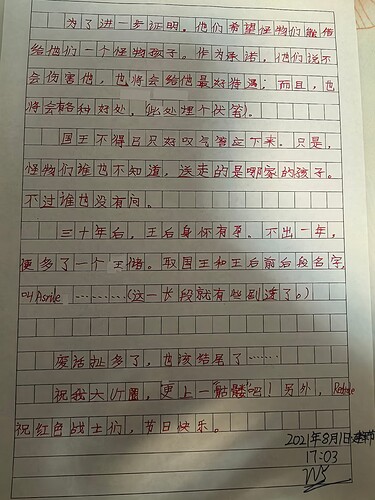 为了进一步证明。他们希望怪物们能借
给他们一个怪物孩子。作为承诺，他们说不
会伤害他，也将会给他最好待遇；而且，也
将会有各种好处，（此处埋个伏笔）.
国王不得已只好叹气答应下来。只是，
怪物们谁也不知道，送走的是哪家的孩子。
不过谁也没有问。
三十年后，王后身怀有孕。不出一年，
便多了一个王储。取国王和王后前后段名字，
叫Asrile ………（这一长段就有些剧透了。）
废话扯多了，也该结尾了……
祝我大UT圈，更上一“骷髅”吧！另外，
祝红色战士们，节日快乐。
2021年8月1日建军节
17:03